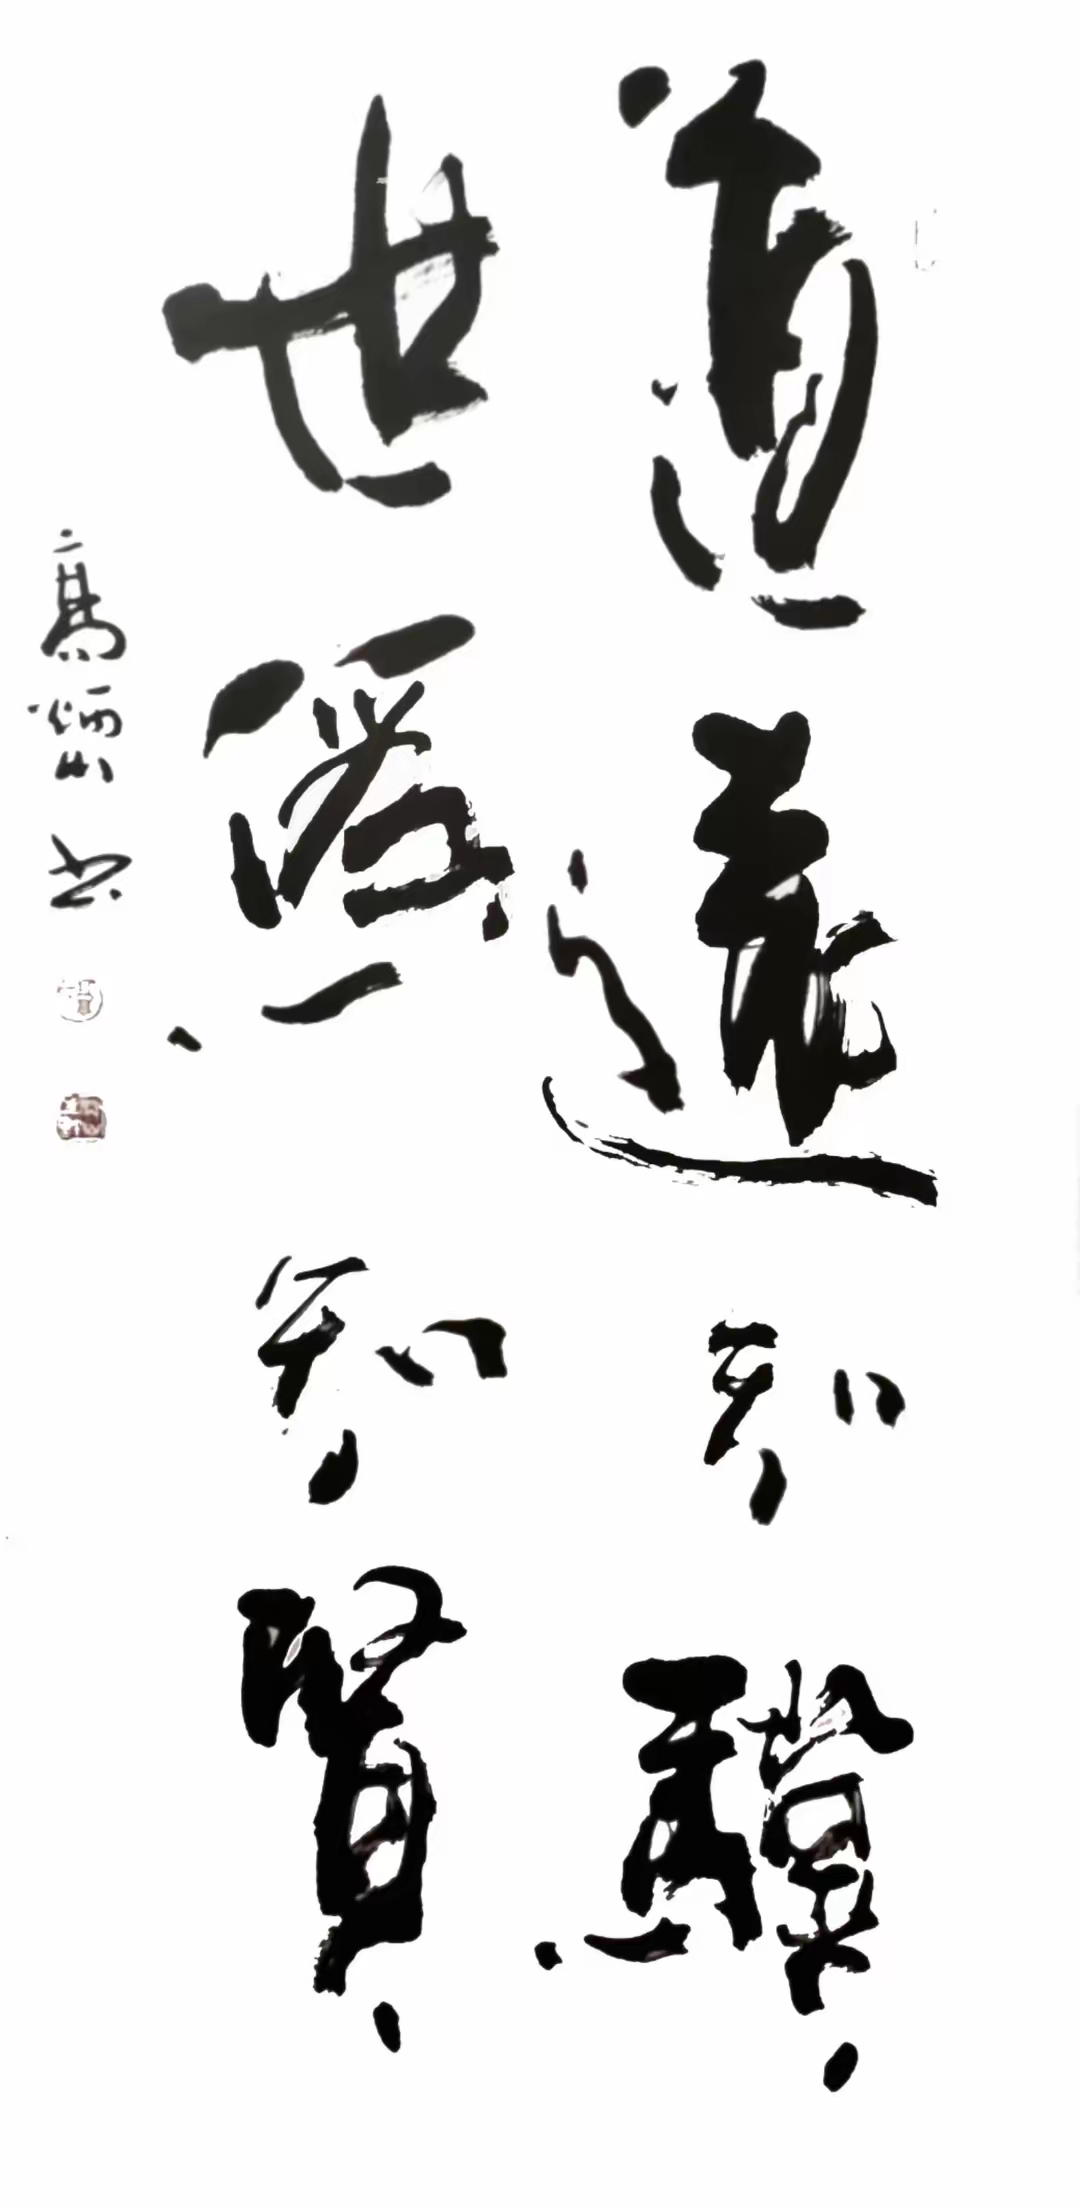 道遠知驥
世偽知賢
高炳山书